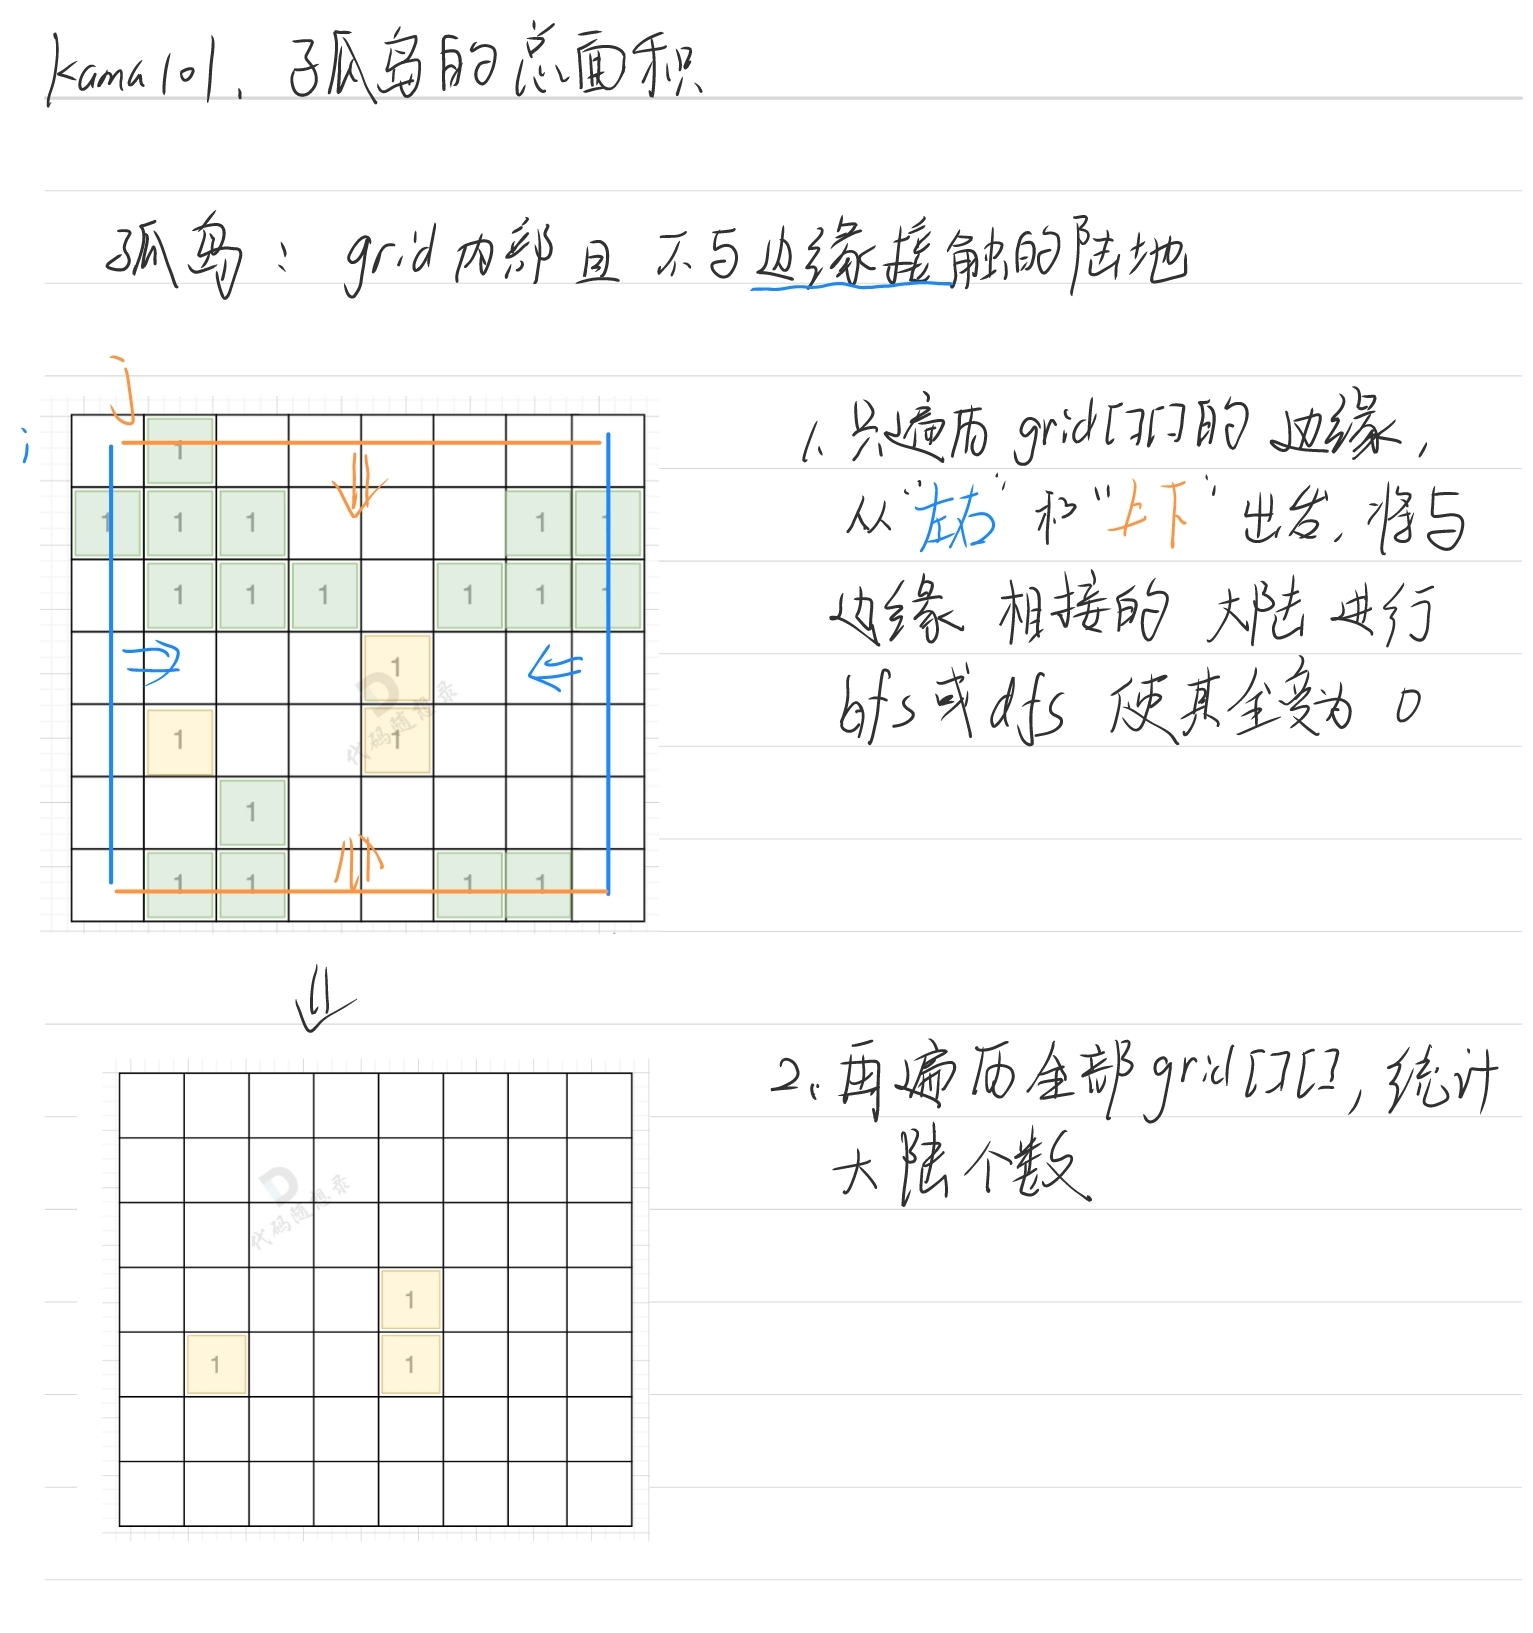 kama101. 孤岛的总面积
孤岛： grid内部且 不与边缘接触的陆地
j
i
1
1 1 1 1 1
1 1 1 1 1 1
1
1 1
1
1 1 1 1
代码随想录
1. 只遍历 grid[][]的 边缘，
从“左右”和“上下”出发，将与
边缘 相接的 大陆 进行
bfs或dfs 使其全变为 0
2. 再遍历全部grid[][]，统计
大陆个数
代码随想录
1
1 1